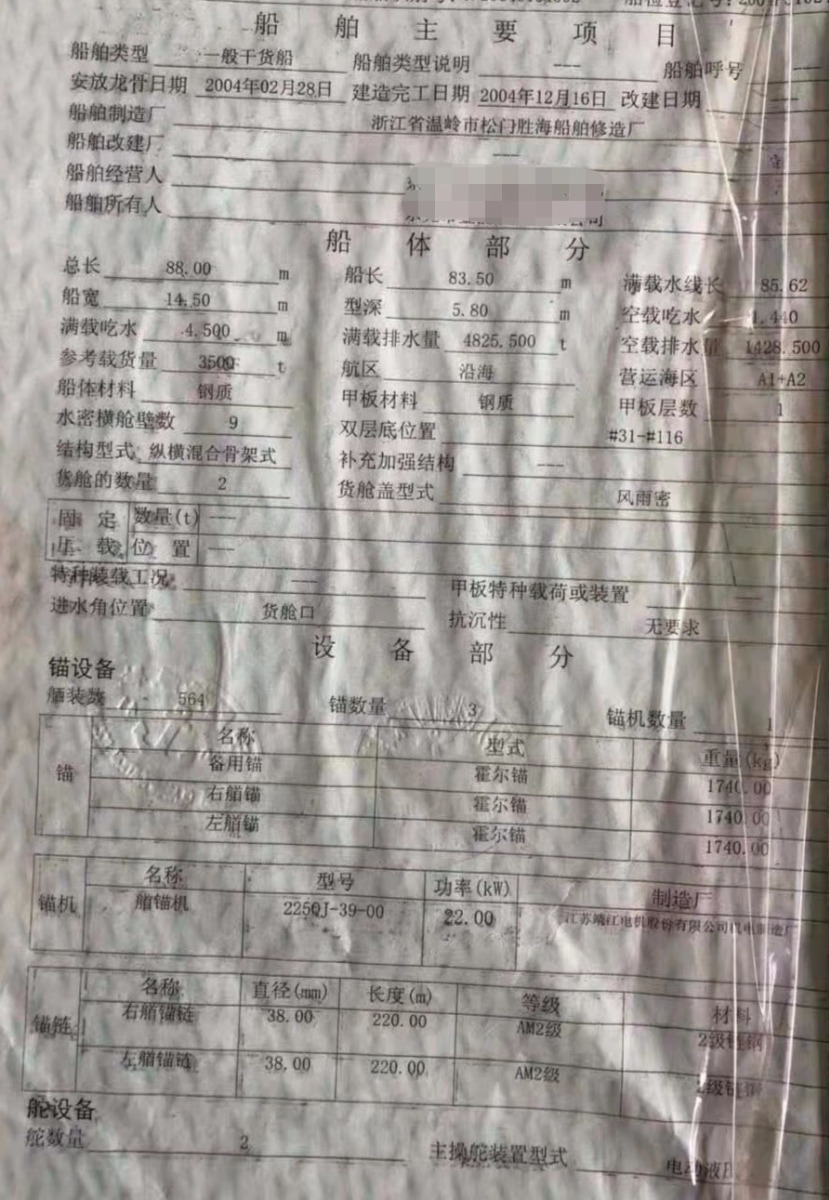 船舶主要项目
船舶类型 一般干货船 船舶类型说明 --- 船舶呼号 ---
安放龙骨日期 2004年02月28日 建造完工日期 2004年12月16日 改建日期 ---
船舶制造厂 浙江省温岭市松门胜海船舶修造厂
船舶改建厂 ---
船舶经营人
船舶所有人 公司
船体部分
总长 88.00 m 船长 83.50 m 满载水线长 85.62
船宽 14.50 m 型深 5.80 m 空载吃水 1.440
满载吃水 4.500 m 满载排水量 4825.500 t 空载排水量 1428.500
参考载货量 3500 t 航区 沿海 营运海区 A1+A2
船体材料 钢质 甲板材料 钢质 甲板层数 1
水密横舱壁数 9 双层底位置 #31-#116
结构型式 纵横混合骨架式 补充加强结构 ---
货舱的数量 2 货舱盖型式 风雨密
固定 数量(t) ---
压载 位置 ---
特种装载工况 --- 甲板特种载荷或装置
进水角位置 货舱口 抗沉性 无要求
设备部分
锚设备
舾装数 564 锚数量 3 锚机数量 1
锚 名称 型式 重量(kg)
备用锚 霍尔锚 1740.00
右艏锚 霍尔锚 1740.00
左艏锚 霍尔锚 1740.00
锚机 名称 型号 功率(kW) 制造厂
艏锚机 225QJ-39-00 22.00 江苏 江电机股份有限公司机电制造厂
锚链 名称 直径(mm) 长度(m) 等级 材料
右艏锚链 38.00 220.00 AM2级 2级链钢
左艏锚链 38.00 220.00 AM2级 2级链钢
舵设备
舵数量 2 主操舵装置型式 电动液